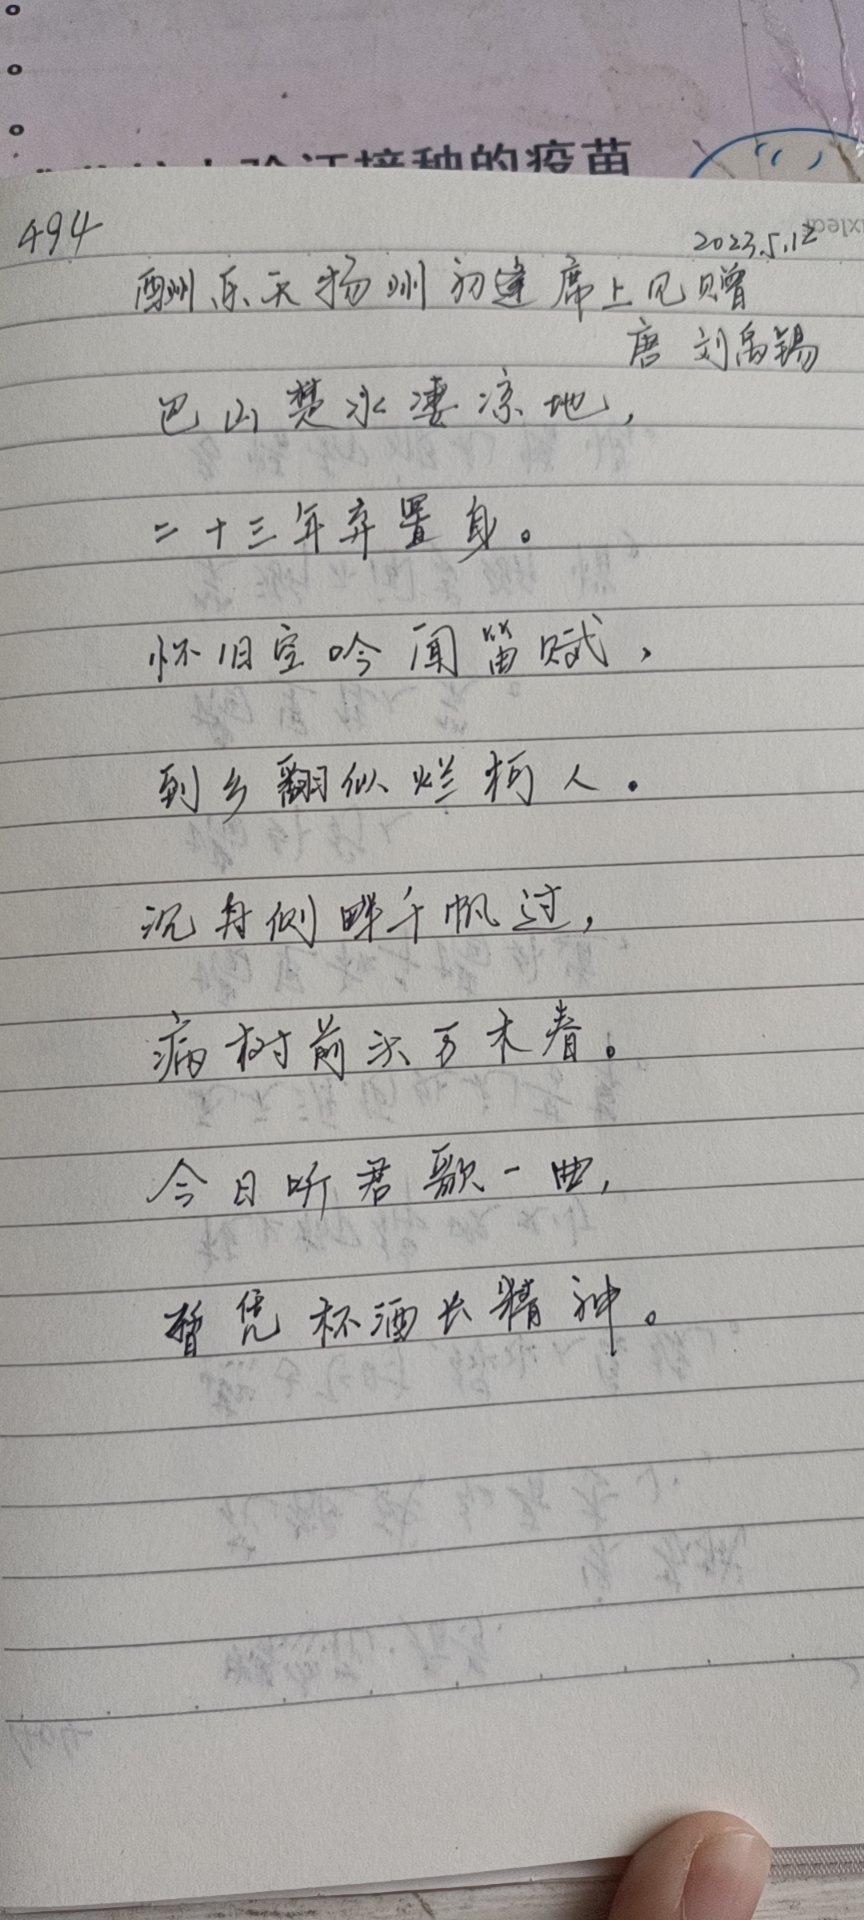 接种的疫苗
494
2023.5.12
酬乐天扬州初逢席上见赠
唐 刘禹锡
巴山楚水凄凉地，
二十三年弃置身。
怀旧空吟闻笛赋，
到乡翻似烂柯人。
沉舟侧畔千帆过，
病树前头万木春。
今日听君歌一曲，
暂凭杯酒长精神。